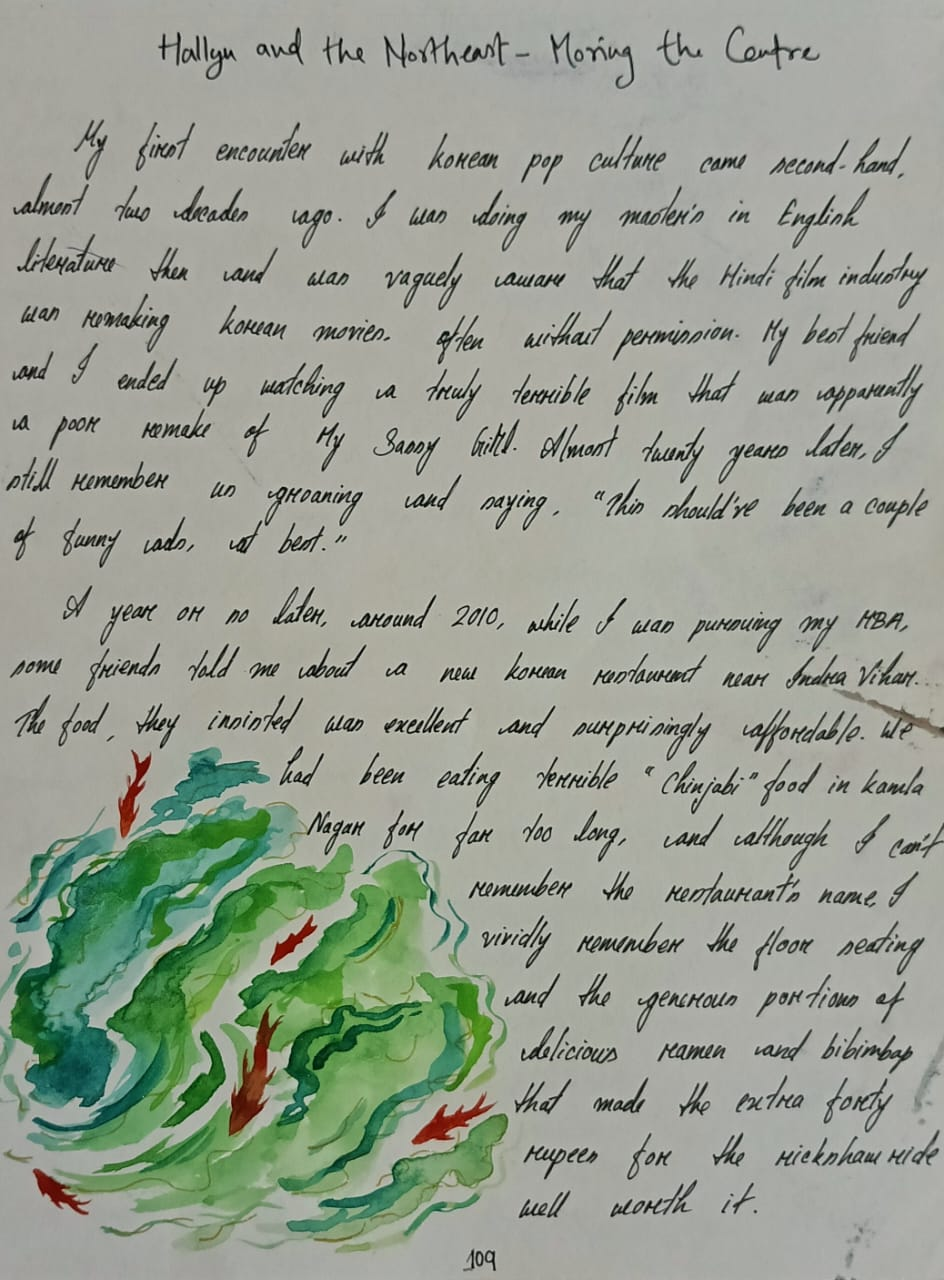 Hallyu and the Northeast - Moving the Centre
My first encounter with korean pop culture came second-hand,
almost two decades ago. I was doing my master's in English
literature then and was vaguely aware that the Hindi film industry
was remaking korean movies. often without permission. My best friend
and I ended up watching a truly terrible film that was apparently
a poor remake of My Sassy Girl. Almost twenty years later, I
still remember us groaning and saying, "This should've been a couple
of funny ads, at best."
A year or so later, around 2010, while I was pursuing my MBA,
some friends told me about a new korean restaurant near Indra Vihar.
The food, they insisted was excellent and surprisingly affordable. We
had been eating terrible "Chinjabi" food in kamla
Nagar for far too long, and although I can't
remember the restaurant's name, I
vividly remember the floor seating
and the generous portions of
delicious ramen and bibimbap
that made the extra forty
rupees for the rickshaw ride
well worth it.
109